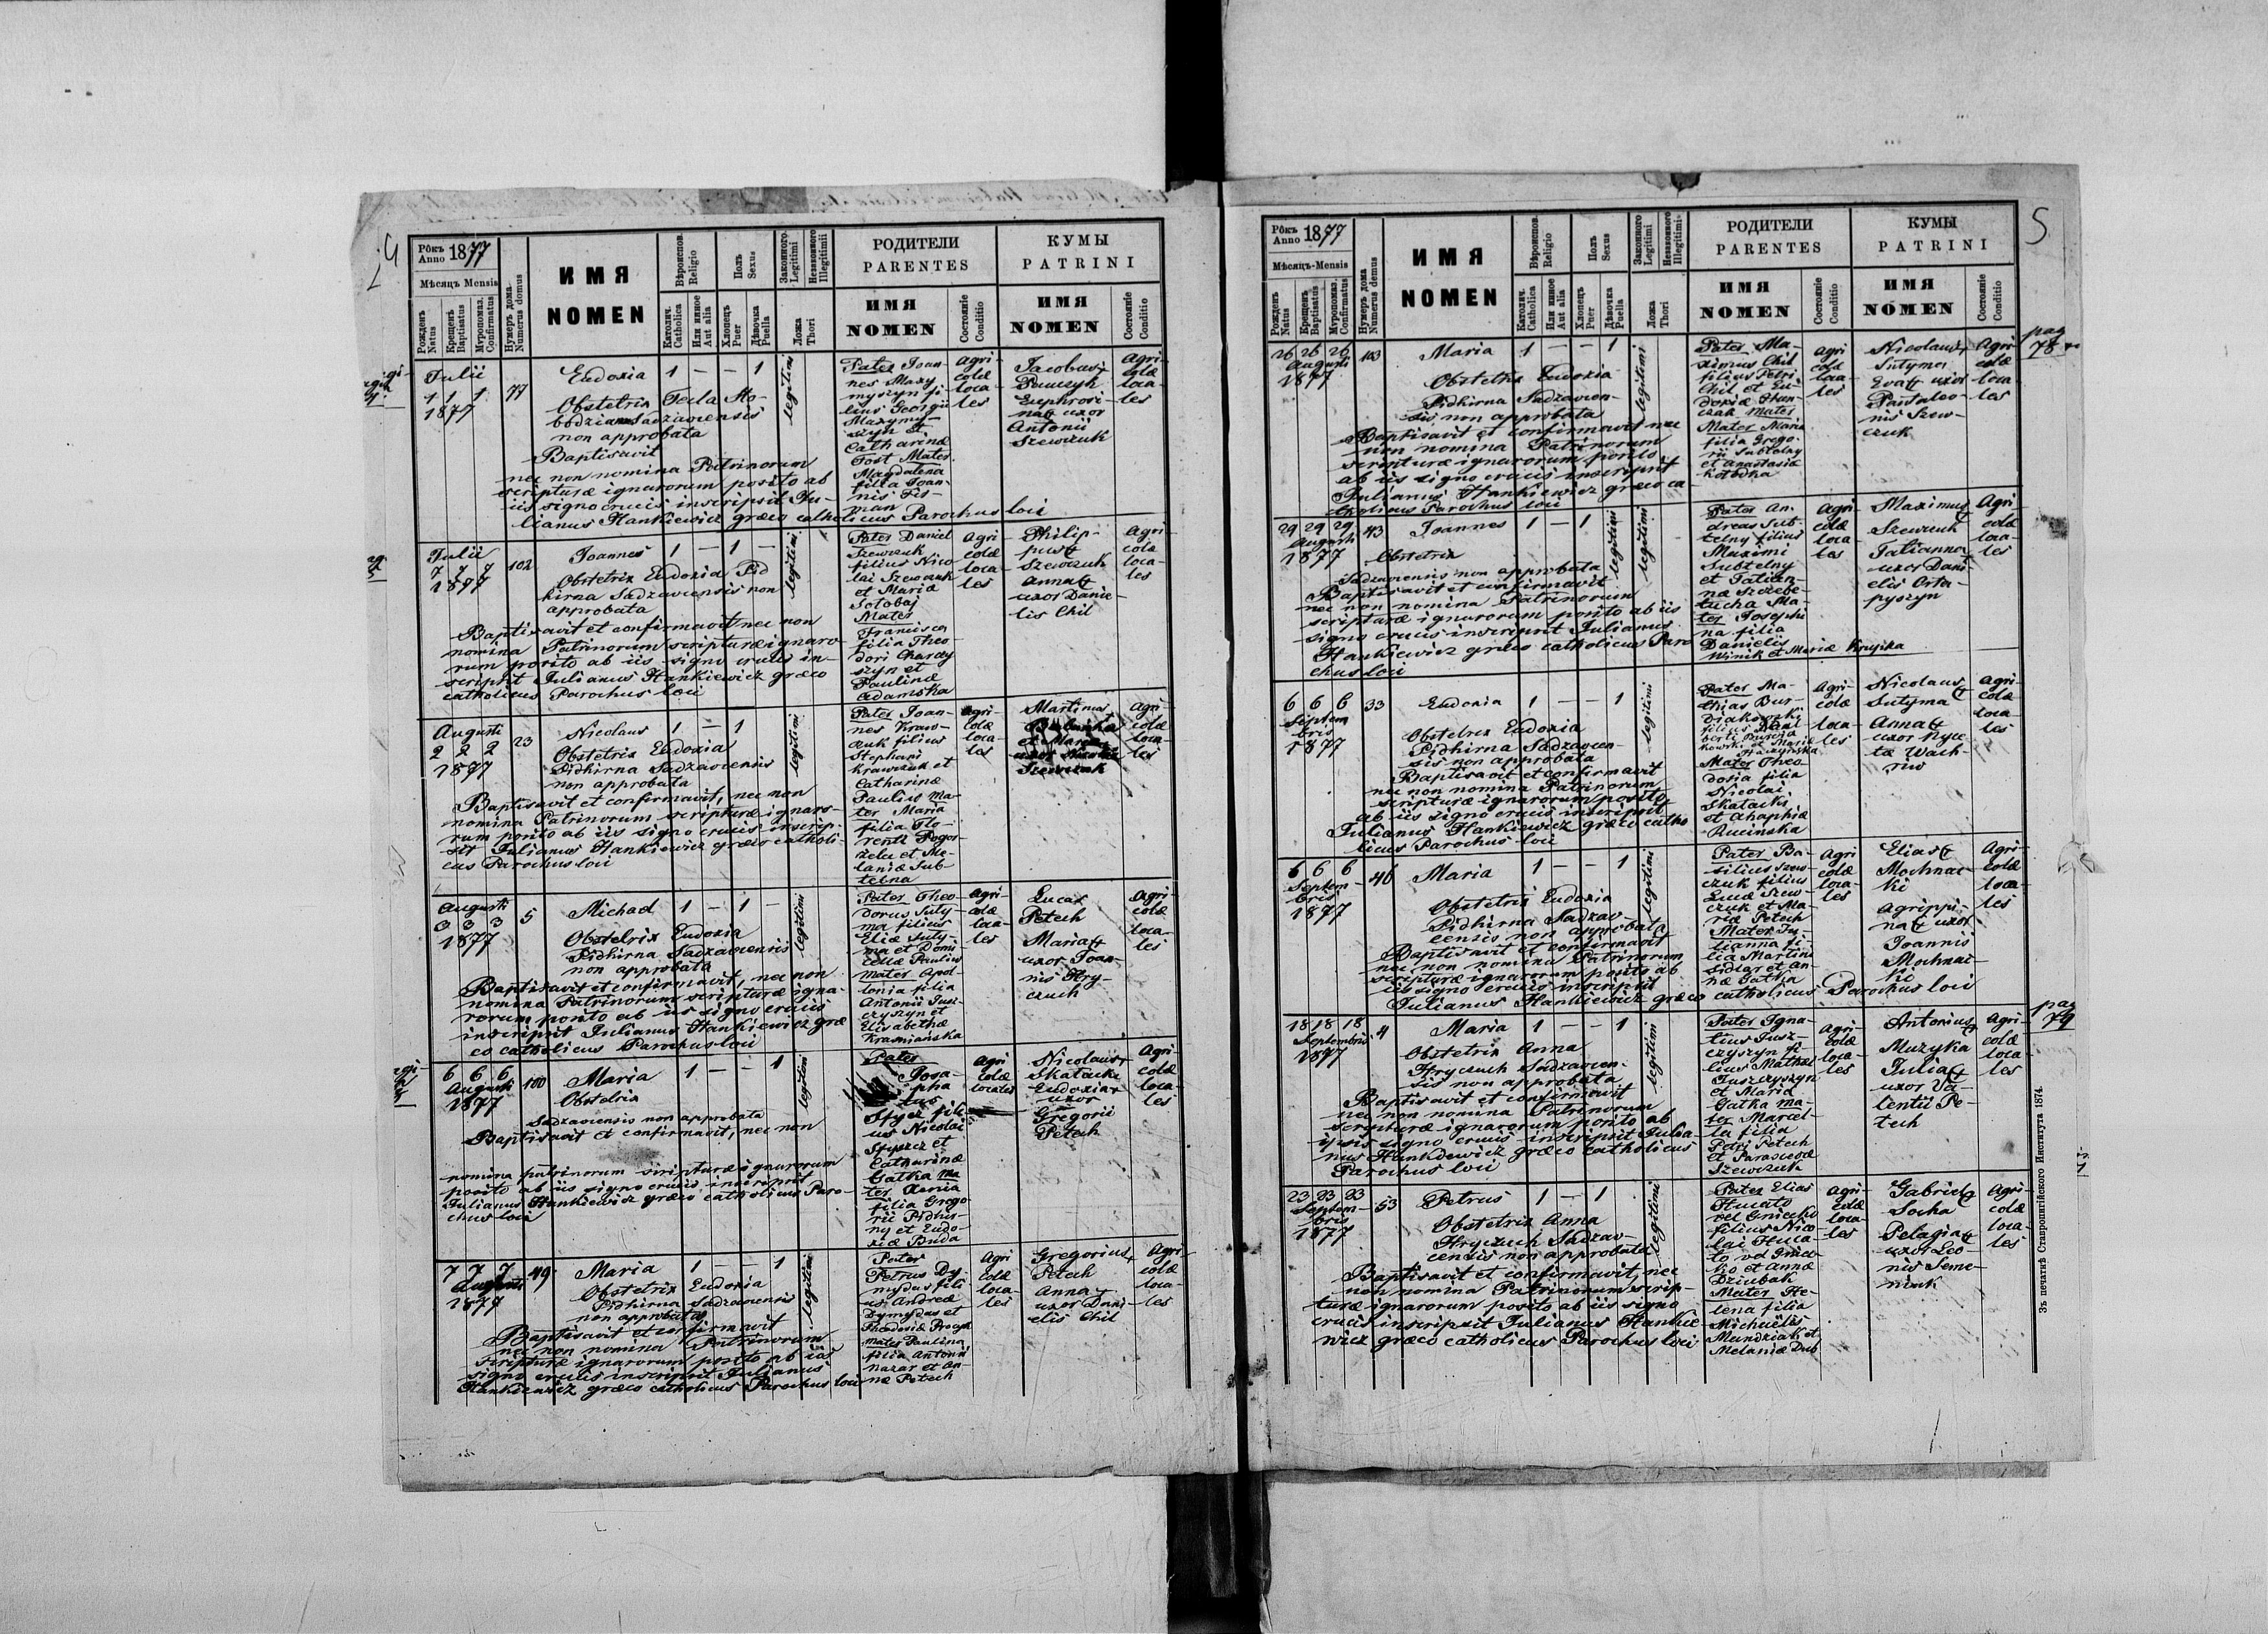 4
Рôкъ Anno 1877
Мѣсяцъ Mensis
Рожденъ Natus
Крещенъ Baptisatus
Муропомаз. Confirmatus
Нумеръ дома Numerus domus
ИМЯ
NOMEN
Вѣроиспов. Religio
Католич. Catholica
Или инное Aut alia
Полъ Sexus
Хлопець Puer
Дѣвочка Puella
Законного Legitimi
Незаконного Illegitimi
Ложа Thori
РОДИТЕЛИ
PARENTES
ИМЯ
NOMEN
Состояніе Conditio
КУМЫ
PATRINI
ИМЯ
NOMEN
Состояніе Conditio
Julii
1 1 1
1877
77
Eudoxia 1 — — 1
Obstetrix Tecla
Sadzaviensis
non approbata
Baptisavit
nec non nomina Patrinorum
scripturæ ignarorum posito ab
iis signo crucis inscripsit Ju-
lianus Hankiewicz græco catholicus Parochus loci
legitimi
Pater Joan-
nes Maxy
myszyn fi
lius Georgii
Maxymy-
szyn et
Catharinæ
Tost Mater
Magdalena
filia Joan-
nis Fis-
man
Agri-
colæ
loca-
les
Jacobus +
Pawczyh
Euphrosi-
na + uxor
Antonii
Szewczuk
Agri-
colæ
loca-
les
Julii
7 7 7
1877
102
Joannes 1 — 1 —
Obstetrix Eudoxia Pid
hirna Sadzaviensis non
approbata
Baptisavit et confirmavit nec non
nomina Patrinorum scripturæ ignaro-
rum posito ab iis signo crucis in-
scripsit Julianus Hankiewicz græco
catholicus Parochus loci
legitimi
Pater Daniel
Szewczuk
filius Nico
lai Szewczuk
et Mariæ
Sotobaj
Mater
Francisca
filia Theo-
dori Charcy
szyn et
Paulinæ
Adamska
Agri
colæ
loca-
les
Philip-
pus +
Szewczuk
Anna +
uxor Danie-
lis Chil
Agri
colæ
loca-
les
Augusti
2 2 2
1877
23
Nicolaus 1 — 1
Obstetrix Eudoxia
Pidhirna Sadzaviensis
non approbata
Baptisavit et confirmavit, nec non
nomina Patrinorum scripturæ ignaro-
rum posito ab iis signo crucis inscrip-
sit Julianus Hankiewicz græco catholi-
cus Parochus loci
legitimi
Pater Joan-
nes Kraw-
czuk filius
Stephani
Krawczuk et
Catharinæ
Pauliw Ma-
ter Maria
filia Flo-
renti Pogor
zelec et Me-
laniæ Sub-
telna
Agri-
colæ
loca-
les
Martinus
et Maria
uxor
Szewczuk
Agri-
colæ
loca-
les
Augusti
3 3 3
1877
5
Michael 1 — 1 —
Obstetrix Eudoxia
Pidhirna Sadzaviensis
non approbata
Baptisavit et confirmavit, nec non
nomina Patrinorum scripturæ igna-
rorum posito ab iis signo crucis
inscripsit Julianus Hankiewicz græ
co catholicus Parochus loci
legitimi
Pater Theo-
dorus Suty-
ma filius
Eliæ Suty-
ma et Domi
cellæ Pauliw
Mater Apol-
lonia filia
Antonii Jusz-
czyszyn et
Elisabethæ
Krasniańska
Agri-
colæ
loca-
les
Lucas
Petech
Maria +
uxor Joan-
nis Hry-
czuch
Agri-
colæ
loca-
les
6 6 6
Augusti
1877
100
Maria 1 — — 1
Obstetrix
Sadzaviensis non approbata
Baptisavit et confirmavit, nec non
nomina patrinorum scripturæ ignarorum
posito ab iis signo crucis inscripsit
Julianus Hankiewicz græco catholicus Paro-
chus loci
legitimi
Pater
Josa-
pha
tus
Hycz fili-
us Nicolai
Hycz et
Catharinæ
Gatka Ma
ter Xenia
filia Grego
rii Pidhir-
ny et Eudo-
xiæ Buda
Agri
colæ
locales
Nicolaus +
Skatacki
Eudoxia +
uxor
Gregorii
Petech
Agri-
colæ
loca-
les
7 7 7
Augusti
1877
49
Maria 1 — — 1
Obstetrix Eudoxia
Pidhirna Sadzaviensis
non approbata
Baptisavit et confirmavit
nec non nomina Patrinorum
scripturæ ignarorum posito ab iis
signo crucis inscripsit Julianus
Hankiewicz græco catholicus Parochus loci
legitimi
Pater
Petrus Dy-
mydas fili
us Andreæ
Dymydas et
Theodosiæ
Mater Paulina
filia Antonii
Nazar et An-
næ Petech
Agri
colæ
loca-
les
Gregorius +
Petech
Anna +
uxor Dani-
elis Chil
Agri-
colæ
loca-
les
5
Рôкъ Anno 1877
Мѣсяцъ-Mensis
Рожденъ Natus
Крещенъ Baptisatus
Муропомаз. Confirmatus
Нумеръ дома Numerus domus
ИМЯ
NOMEN
Вѣроиспов. Religio
Католич. Catholica
Или инное Aut alia
Полъ Sexus
Хлопець Puer
Дѣвочка Puella
Законного Legitimi
Незаконного Illegitimi
Ложа Thori
РОДИТЕЛИ
PARENTES
ИМЯ
NOMEN
Состояніе Conditio
КУМЫ
PATRINI
ИМЯ
NOMEN
Состояніе Conditio
pag
78
26 26 26
Augusti
1877
103
Maria 1 — — 1
Obstetrix Eudoxia
Pidhirna Sadzavien-
sis non approbata
Baptisavit et confirmavit nec
non nomina Patrinorum
scripturæ ignarorum posito
ab iis signo crucis inscripsit
Julianus Hankiewicz græco ca
tholicus Parochus loci
legitimi
Pater Ma-
ximus Chil
filius Petri
Chil et Eu-
doxiæ Han-
czak Mater
Mater Maria
filia Grego-
rii Subtelny
et Anastasiæ
Kołodka
Agri
colæ
loca-
les
Nicolaus +
Sutyma
Eva + uxor
Pantaleo-
nis Szew-
czuk
Agri-
colæ
loca-
les
29 29 29
Augusti
1877
43
Joannes 1 — 1
Obstetrix
Sadzaviensis non approbata
Baptisavit et confirmavit
nec non nomina Patrinorum
scripturæ ignarorum posito ab iis
signo crucis inscripsit Julianus
Hankiewicz græco catholicus Paro
chus loci
legitimi
legitimi
Pater An-
dreas Sub-
telny filius
Maximi
Subtelny
et Tatian-
næ Szczebe-
tucha Ma-
ter Josephi
na filia
Danielis
Winik et Mariæ Krupka
Agri-
colæ
loca-
les
Maximus +
Szewczuk
Tatianna +
uxor Dani
elis Osta-
pyszyn
Agri-
colæ
loca-
les
6 6 6
Septem
bris
1877
33
Eudoxia 1 — — 1
Obstetrix Eudoxia
Pidhirna Sadzavien-
sis non approbata
Baptisavit et confirmavit
nec non nomina Patrinorum
scripturæ ignarorum posito
ab iis signo crucis inscripsit
Julianus Hankiewicz græco catho
licus Parochus loci
legitimi
Pater Ma-
thias Bur-
Mater Theo-
dosia filia
Nicolai
Skatacki
et Ahaphiæ
Rucinska
Agri-
colæ
loca-
les
Nicolaus +
Sutyma
Anna +
uxor Nyce
tæ Wach-
niw
Agri-
colæ
loca-
les
6 6 6
Septem-
bris
1877
46
Maria 1 — — 1
Obstetrix Eudoxia
Pidhirna Sadzav-
iensis non approbata
Baptisavit et confirmavit
nec non nomina Patrinorum
scripturæ ignarorum posito ab
iis signo crucis inscripsit
Julianus Hankiewicz græco catholicus Parochus loci
legitimi
Pater Ba-
silius Szew-
czuk filius
Lucæ Szew-
czuk et Ma-
riæ Petech
Mater Ju-
lianna fi-
lia Martini
Sidlar et An-
næ Gatka
Agri
colæ
loca-
les
Elias +
Mochnac-
ki
Agrippi-
na + uxor
Joannis
Mochnac-
ki
Agri-
colæ
loca-
les
pag
79
18 18 18
Septembris
1877
4
Maria 1 — — 1
Obstetrix Anna
Hryczuch Sadzavien-
sis non approbata
Baptisavit et confirmavit
nec non nomina Patrinorum
scripturæ ignarorum posito ab
ipsis signo crucis inscripsit Julia-
nus Hankiewicz græco catholicus
Parochus loci
legitimi
Pater Igna-
tius Jusz-
czyszyn fi-
lius Mathæi
Juszczyszyn
et Mariæ
Gatka Ma-
ter Marcel-
la filia
Petri Petech
et Parascevæ
Szewczuk
Agri-
colæ
loca-
les
Antonius +
Muzyka
Julia +
uxor Va-
lentii Pe-
tech
Agri-
colæ
loca
les
23 23 23
Septem-
bris
1877
53
Petrus 1 — 1
Obstetrix Anna
Hryczuch Sadzav-
iensis non approbata
Baptisavit et confirmavit, nec
non nomina Patrinorum scrip-
turæ ignarorum posito ab iis signo
crucis inscripsit Julianus Hankie-
wicz græco catholicus Parochus loci
legitimi
Pater Elias
Hucało
vel Gniecko
filius Nico-
lai Huca-
ło vel Gniec-
ko et Annæ
Dziubak
Mater He-
lena filia
Michaelis
Mundziak et
Melaniæ Dub
Agri-
colæ
loca-
les
Gabriel +
Socha
Pelagia +
uxor Leo-
nis Seme-
niuk
Agri-
colæ
loca-
les
Зъ печатнѣ Ставропигійского Института 1874.